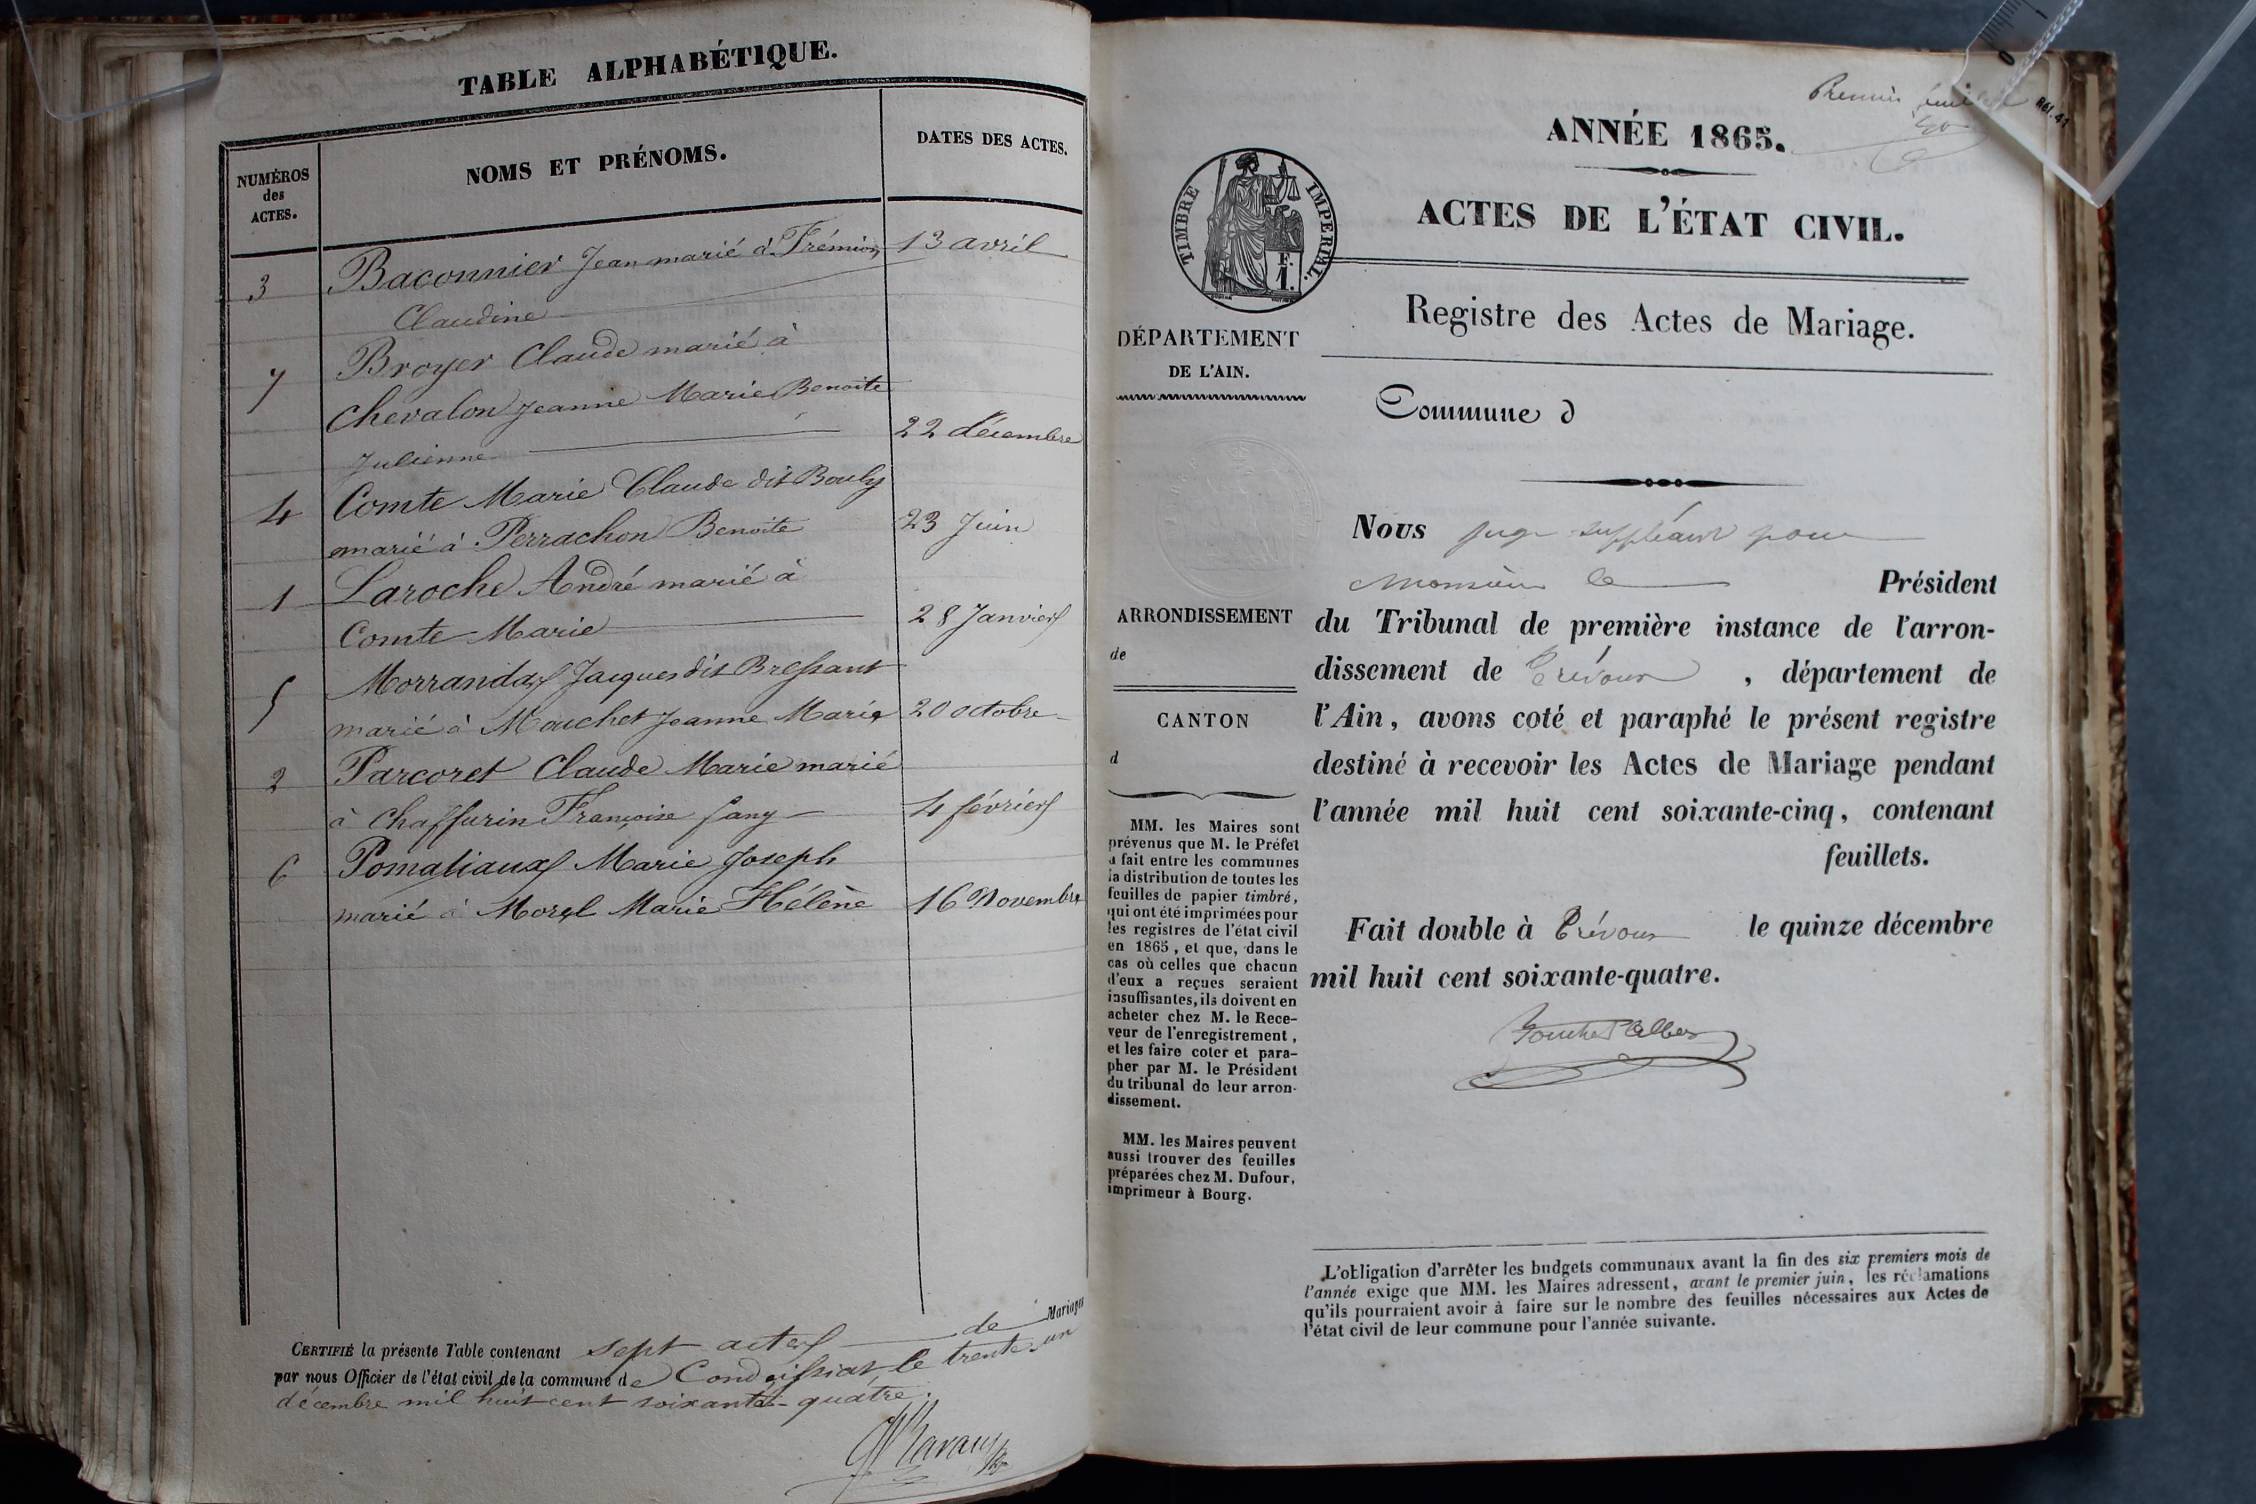 TABLE ALPHABÉTIQUE.
NUMÉROS
des
ACTES.
NOMS ET PRÉNOMS.
DATES DES ACTES.
3 Baconnier Jean marié à Frémion 13 avril
Claudine
7 Broyer Claude marié à
Chevalon Jeanne Marie Benoite
Julienne 22 décembre
4 Comte Marie Claude dit Bouly
marié à Perrachon Benoite 23 Juin
1 Laroche André marié à
Comte Marie 28 Janvier
5 Morrandas Jacques dit Bressant
marié à Mouchet Jeanne Marie 20 octobre
2 Parcoret Claude Marie marié
à Chaffurin Françoise fany 4 février
6 Pomatiaux Marie Joseph
marié à Morel Marie Hélène 16 Novembre
CERTIFIÉ la présente Table contenant sept actes de Mariages
par nous Officier de l'état civil de la commune de Condeissiat le trente un
décembre mil huit cent soixante-quatre.
Premier feuillet
Réf. 41
0
ANNÉE 1865.
ACTES DE L'ÉTAT CIVIL.
TIMBRE IMPERIAL.
F.
1.
Registre des Actes de Mariage.
DÉPARTEMENT
DE L'AIN.
Commune d
Nous juge suppléant pour
Monsieur le Président
du Tribunal de première instance de l'arron-
dissement de Trévoux , département de
l'Ain, avons coté et paraphé le présent registre
destiné à recevoir les Actes de Mariage pendant
l'année mil huit cent soixante-cinq, contenant
feuillets.
Fait double à Trévoux le quinze décembre
mil huit cent soixante-quatre.
ARRONDISSEMENT
de
CANTON
d
MM. les Maires sont
prévenus que M. le Préfet
a fait entre les communes
la distribution de toutes les
feuilles de papier timbré,
qui ont été imprimées pour
les registres de l'état civil
en 1865, et que, dans le
cas où celles que chacun
d'eux a reçues seraient
insuffisantes, ils doivent en
acheter chez M. le Rece-
veur de l'enregistrement,
et les faire coter et para-
pher par M. le Président
du tribunal de leur arron-
dissement.
MM. les Maires peuvent
aussi trouver des feuilles
préparées chez M. Dufour,
imprimeur à Bourg.
L'obligation d'arrêter les budgets communaux avant la fin des six premiers mois de
l'année exige que MM. les Maires adressent, avant le premier juin, les réclamations
qu'ils pourraient avoir à faire sur le nombre des feuilles nécessaires aux Actes de
l'état civil de leur commune pour l'année suivante.